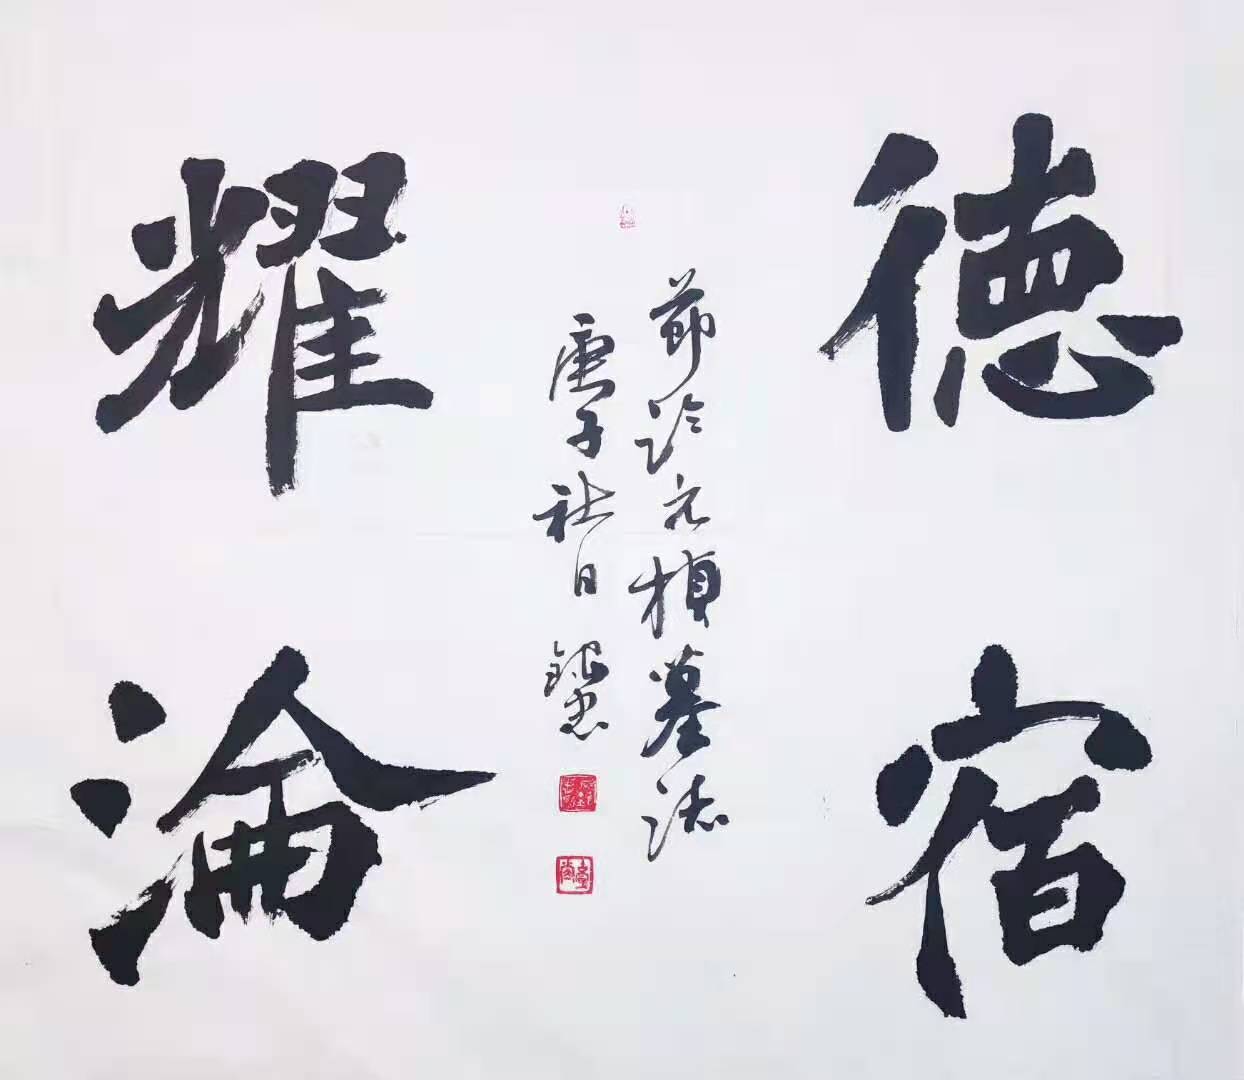 德宿
節臨元楨墓誌
庚子社日
耀淪